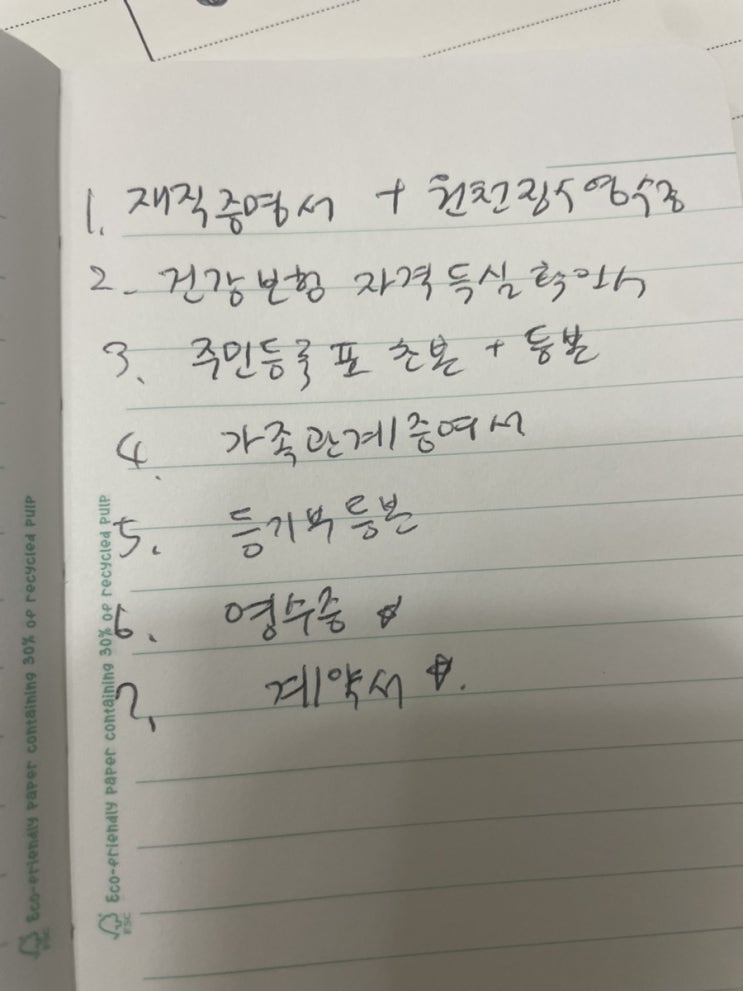 1. 재직증명서 + 원천징수영수증
2. 건강보험 자격득실확인서
3. 주민등록표 초본 + 등본
4. 가족관계증명서
5. 등기부등본
6. 영수증 ☆
7. 계약서 ☆.
Eco-friendly paper containing 30% of recycled pulp
Eco-friendly paper containing 30% of recycled pulp
FSC
FSC